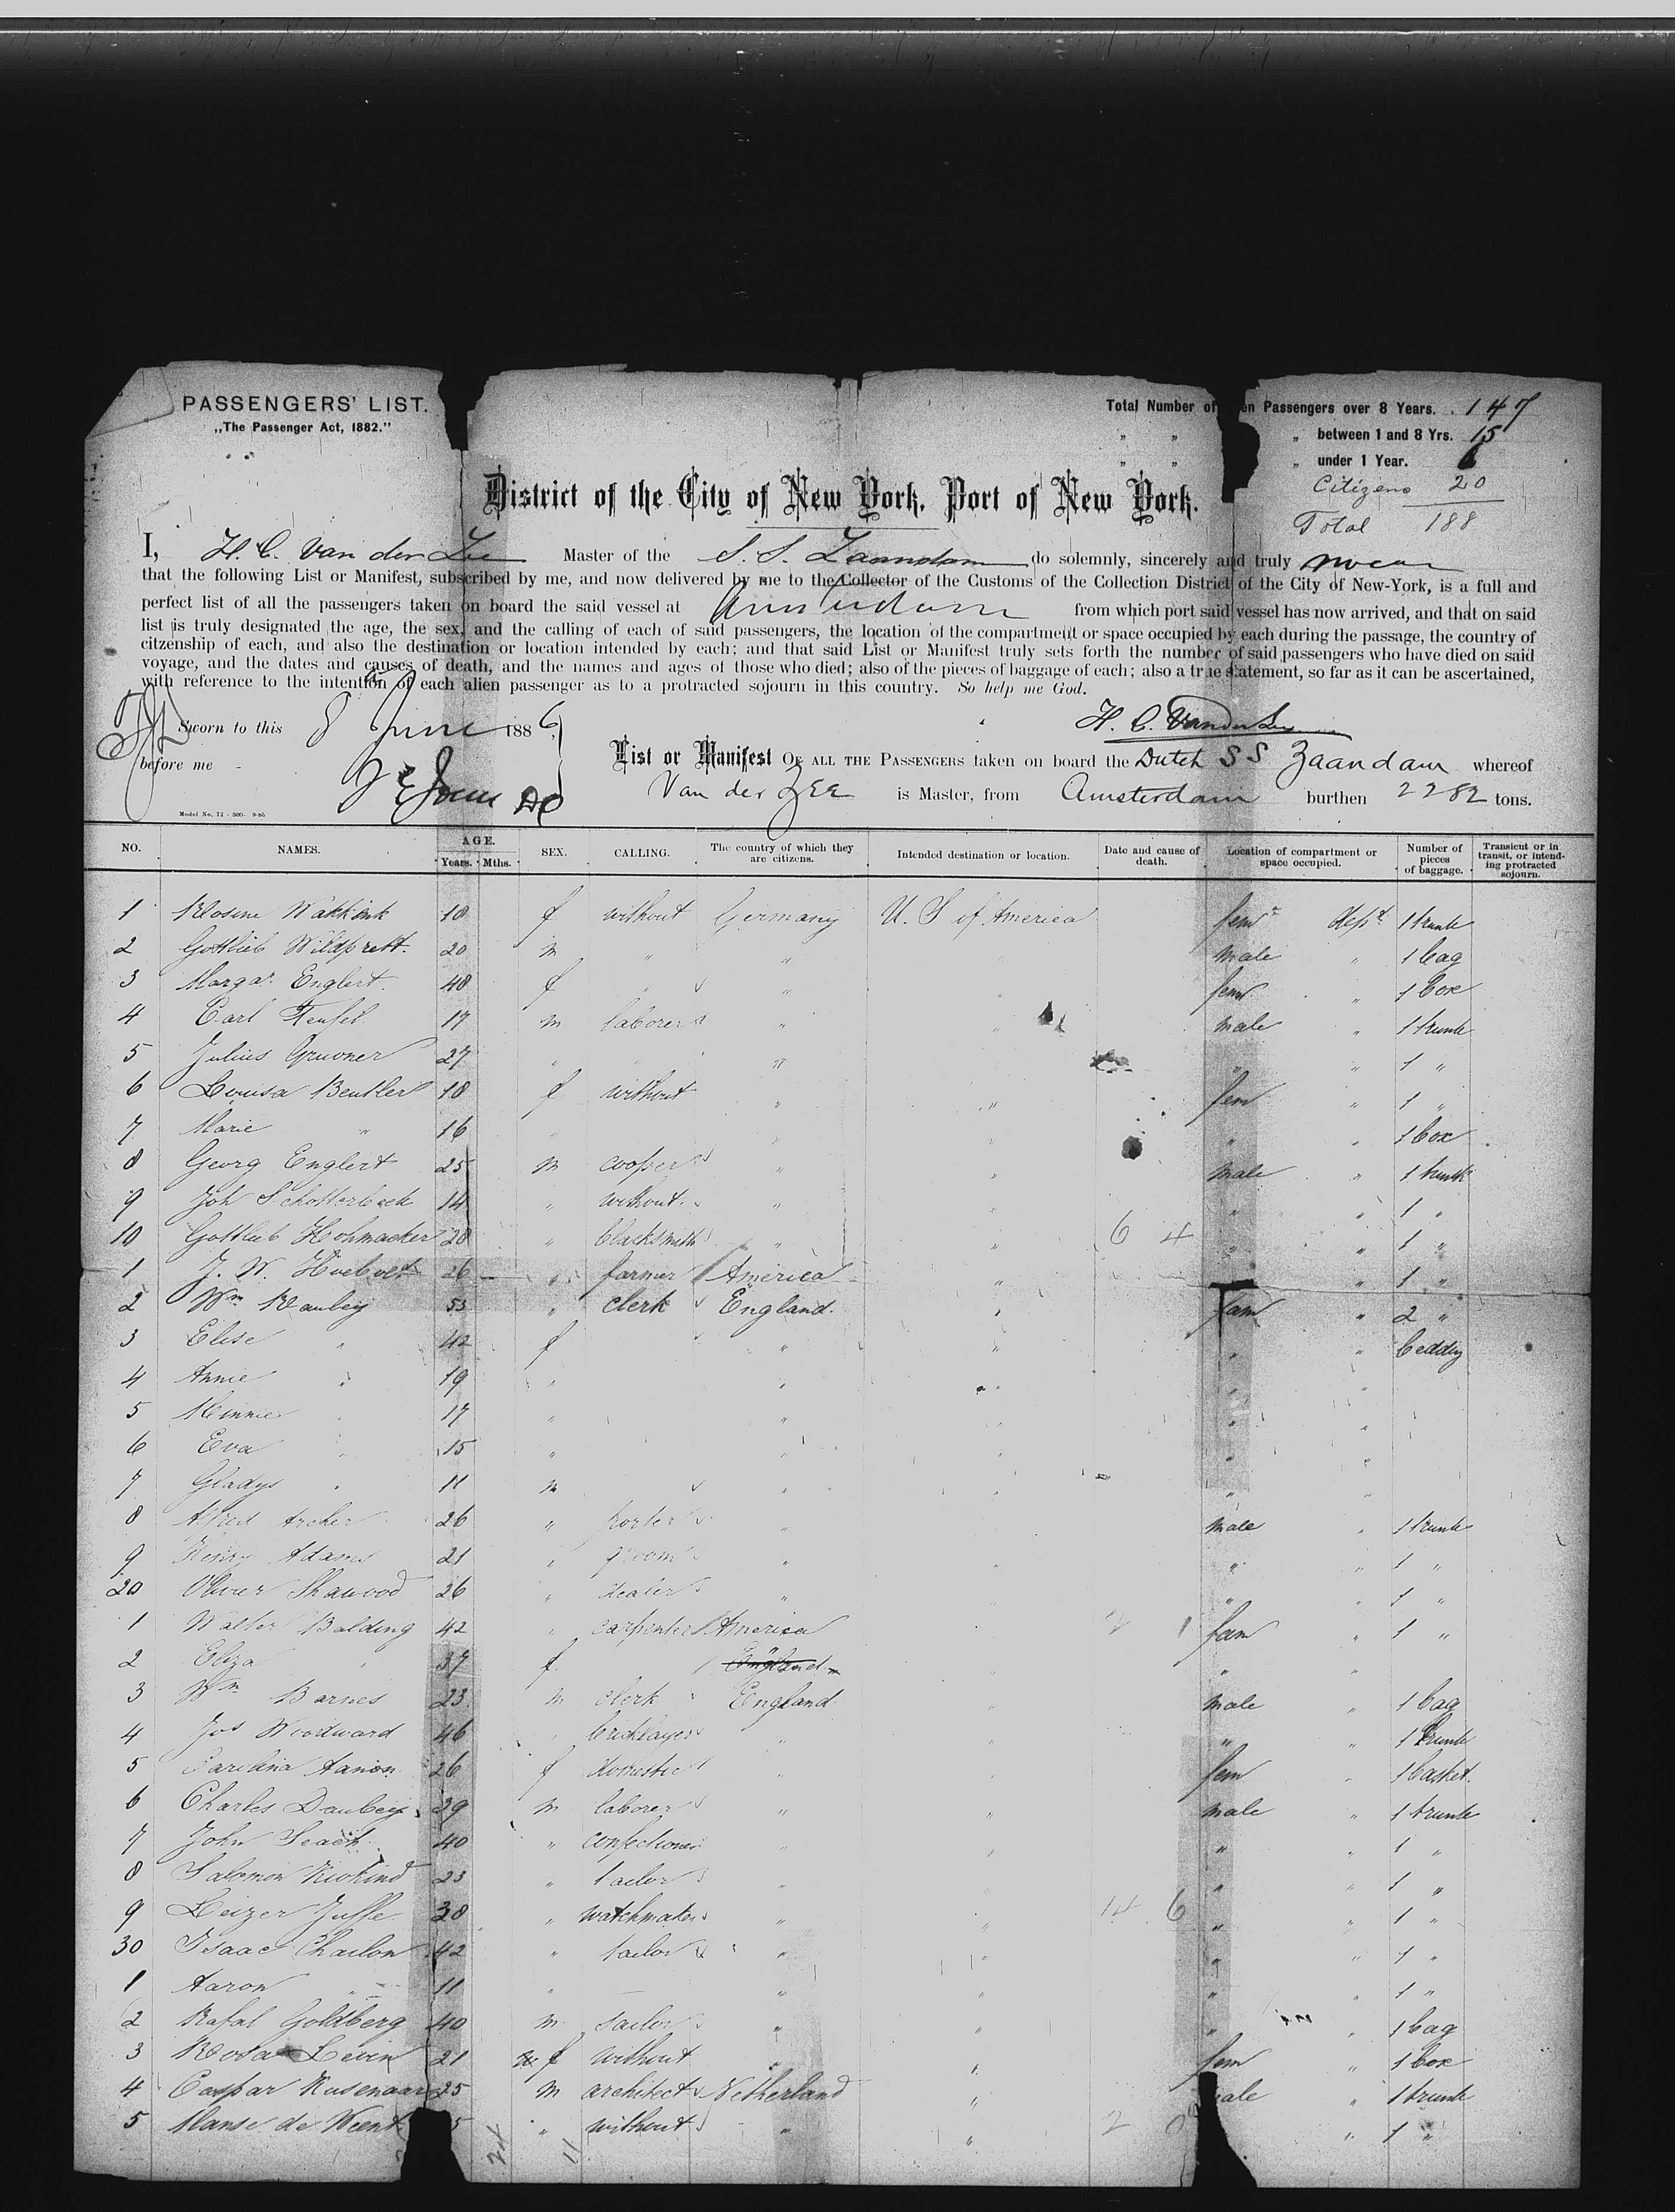 PASSENGERS' LIST.
„The Passenger Act, 1882."
Total Number of en Passengers over 8 Years. 147
„ „ „ between 1 and 8 Yrs. 15
„ „ „ under 1 Year. 6
Citizens 20
Total 188
District of the City of New York, Port of New York.
I, H. C. Van der Zee Master of the S. S. Zaandam do solemnly, sincerely and truly swear
that the following List or Manifest, subscribed by me, and now delivered by me to the Collector of the Customs of the Collection District of the City of New-York, is a full and
perfect list of all the passengers taken on board the said vessel at Amsterdam from which port said vessel has now arrived, and that on said
list is truly designated the age, the sex, and the calling of each of said passengers, the location of the compartment or space occupied by each during the passage, the country of
citzenship of each, and also the destination or location intended by each; and that said List or Manifest truly sets forth the number of said passengers who have died on said
voyage, and the dates and causes of death, and the names and ages of those who died; also of the pieces of baggage of each; also a true statement, so far as it can be ascertained,
with reference to the intention of each alien passenger as to a protracted sojourn in this country. So help me God.
Sworn to this 8 June 1886
H. C. Van der Zee
before me
List or Manifest OF ALL THE PASSENGERS taken on board the Dutch SS Zaandam whereof
Van der Zee is Master, from Amsterdam burthen 2282 tons.
Model No. 72 - 500- 9-85
NO. NAMES. AGE. Years. Mths. SEX. CALLING. The country of which they are citizens. Intended destination or location. Date and cause of death. Location of compartment or space occupied. Number of pieces of baggage. Transient or in transit, or intending protracted sojourn.
1 Rosine Wakkink 18 f without Germany U. S of America fem dept 1 trunk
2 Gottlieb Wildprett 20 m „ „ „ male „ 1 bag
3 Margar. Englert 48 f „ „ „ fem „ 1 box
4 Carl Teufel 17 m laborer „ „ male „ 1 trunk
5 Julius Gruoner 27 „ „ „ „ „ „ 1 „
6 Louisa Beutler 18 f without „ „ fem „ 1 „
7 Marie „ 16 „ „ „ „ „ 1 box
8 Georg Englert 25 m cooper „ „ male „ 1 trunk
9 Joh Schotterbeck 14 „ without „ „ „ „ 1 „
10 Gottlieb Hohmacker 28 „ blacksmith „ „ 6 4 „ „ 1 „
1 J. W. 26 „ farmer America „ „ 1 „
2 Wm Raubey 53 „ clerk England „ fam „ 2 „
3 Elise „ 42 f „ „ „ „ bedding
4 Annie „ 19 „ „ „ „ „
5 Minnie „ 17 „ „ „ „ „
6 Eva „ 15 „ „ „ „ „
7 Gladys „ 11 m „ „ „ „
8 Alfred Archer 26 „ porter „ male „ 1 trunk
9 Henry Adams 21 „ groom „ „ „ 1 „
20 Oliver Shawood 26 „ dealer „ „ „ 1 „
1 Walter Balding 42 „ carpenter America 2 1 fam „ 1 „
2 Eliza „ 37 f England „ „
3 Wm Barnes 23 m clerk England „ male „ 1 bag
4 Jos Woodward 46 „ bricklayer „ „ „ „ 1 trunk
5 Carolina 26 f domestic „ „ fem „ 1 basket
6 Charles Daubeys 29 m laborer „ „ male „ 1 trunk
7 John Seach 40 „ confectioner „ „ „ „ 1 „
8 Salomon 23 „ tailor „ „ „ „ 1 „
9 Leizer Juffe 38 „ watchmaker „ „ 14 6 „ „ 1 „
30 Isaac Charlon 42 „ tailor „ „ „ „ 1 „
1 Aaron „ 11 „ „ „ „ „ 1 „
2 Rafal Goldberg 40 m tailor „ „ „ „ 1 bag
3 Rosa Levin 21 f without „ „ fem „ 1 box
4 Caspar Rusenaar 25 m architect Netherland „ male „ 1 trunk
5 Manse de Weent 5 „ without „ „ 2 0 „ 1 „